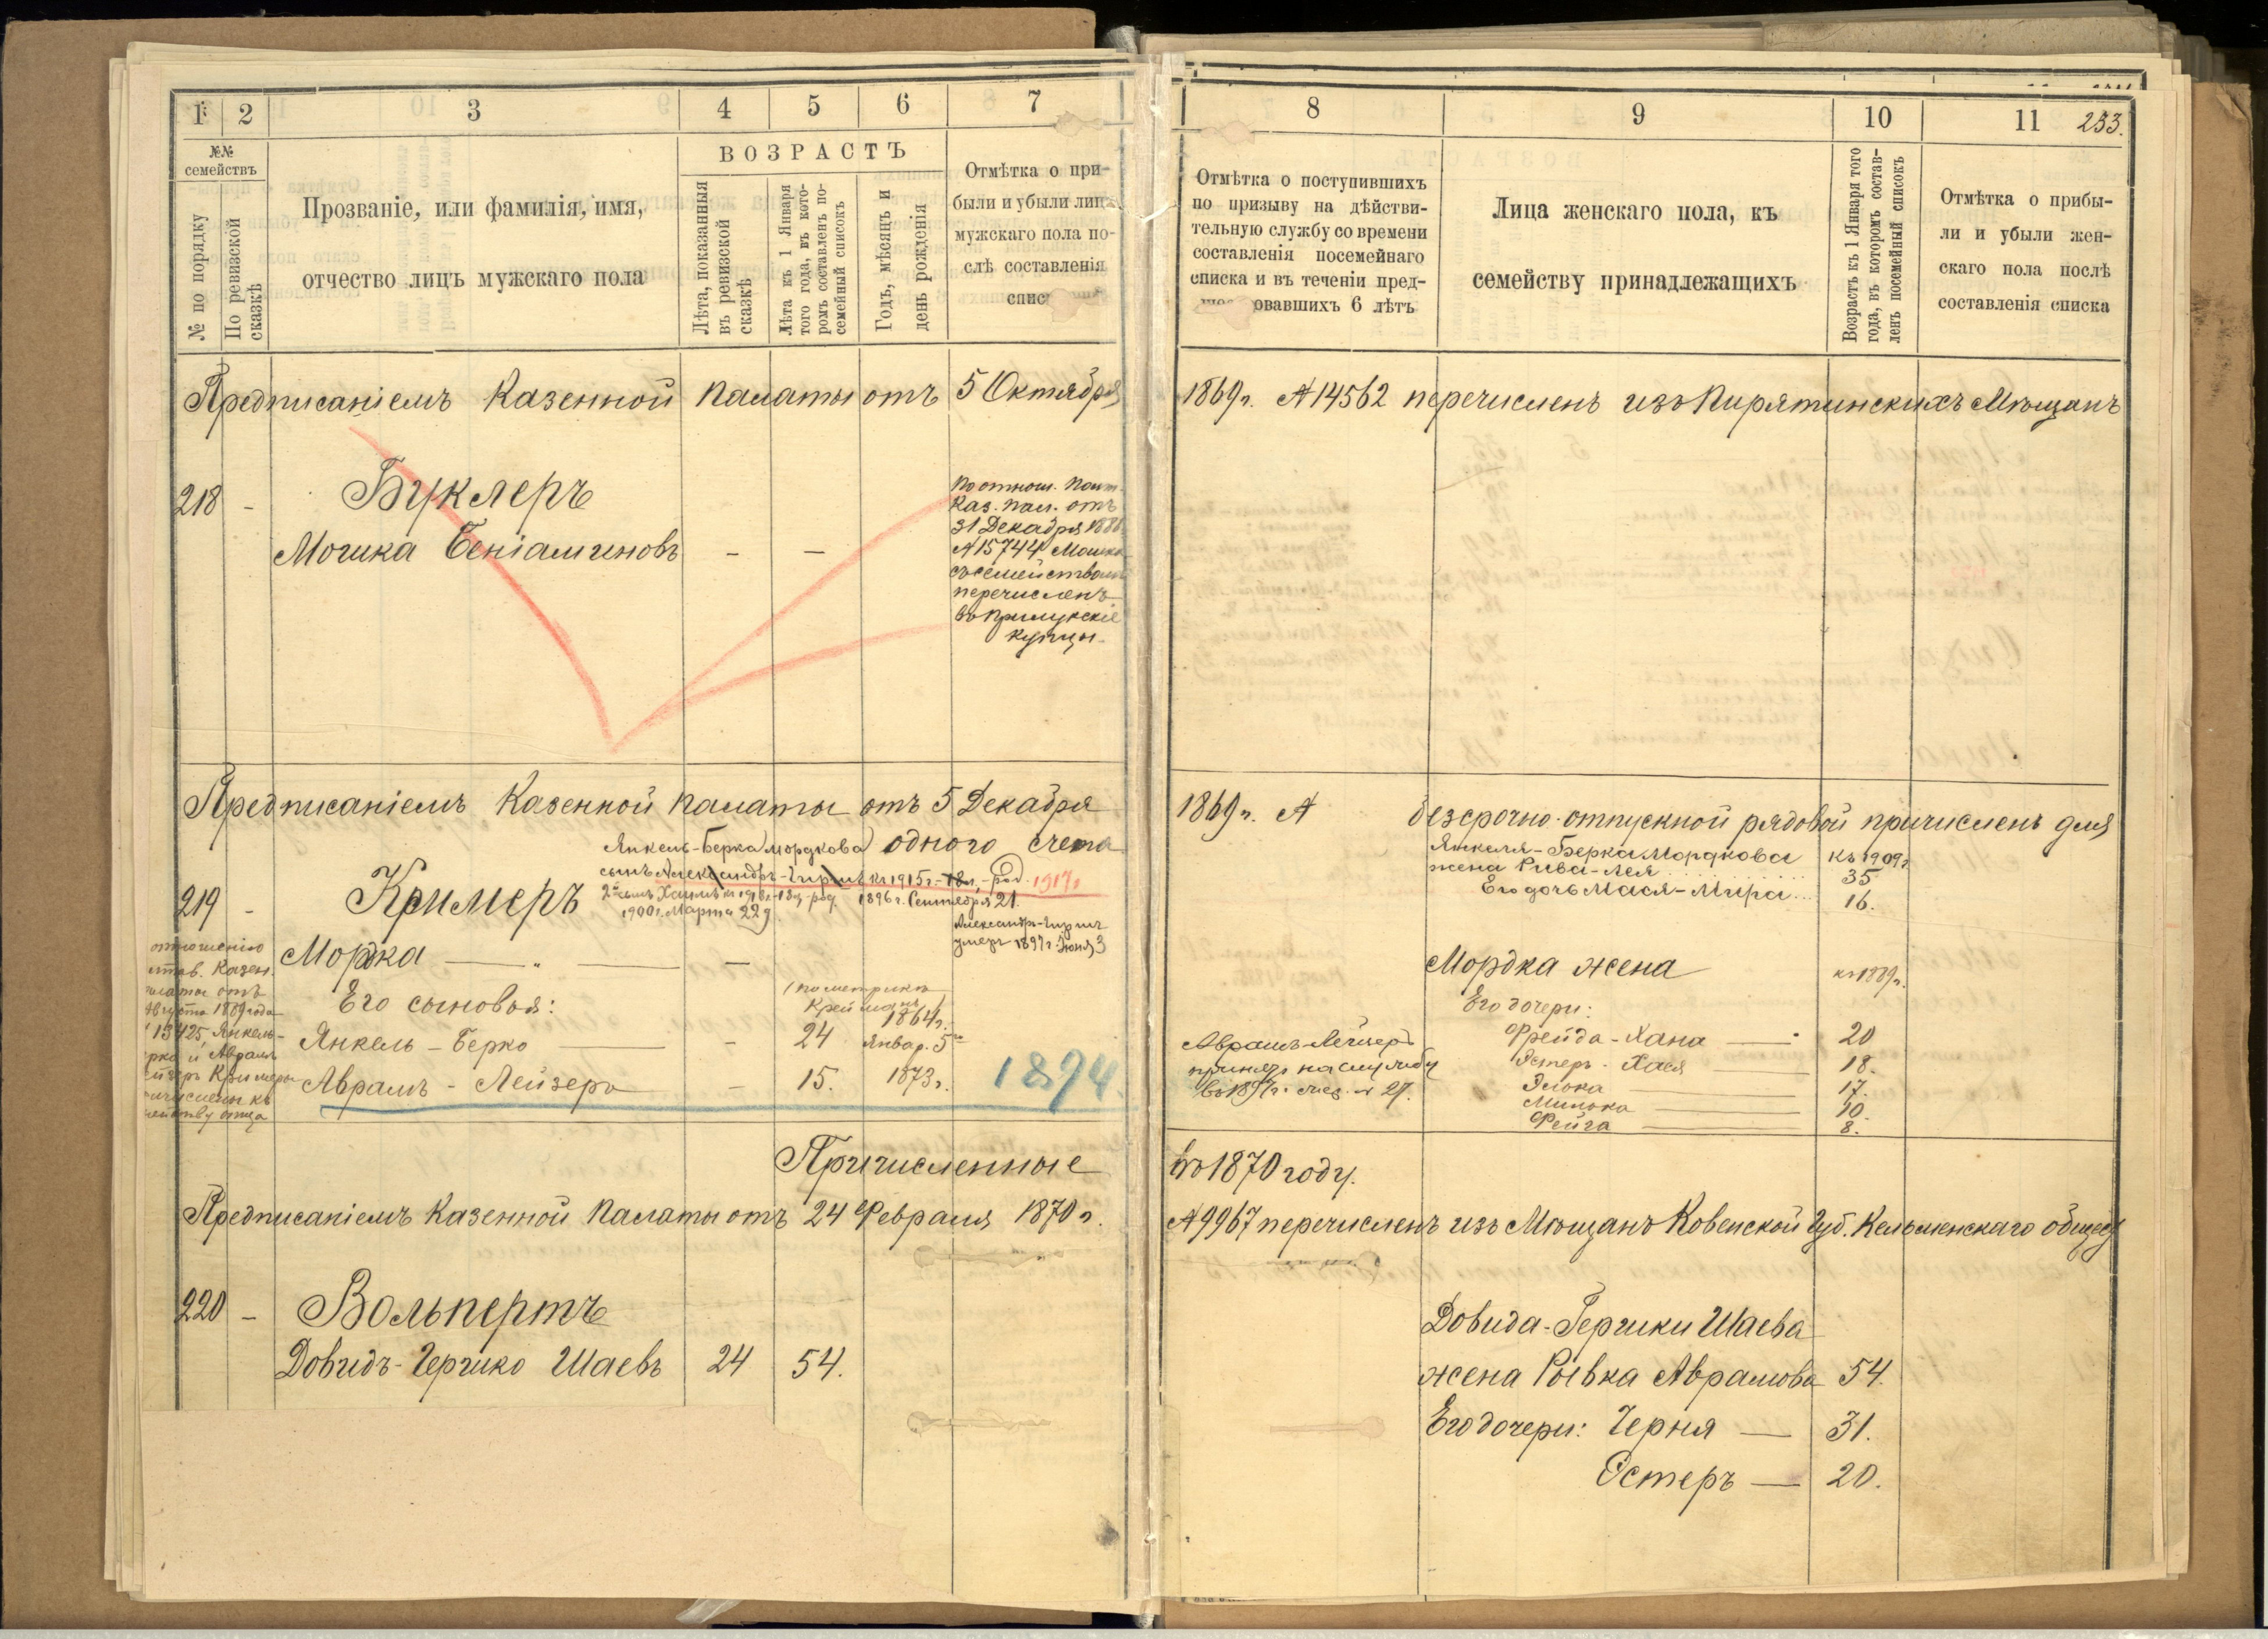 1 2 3 4 5 6 7
№№ семействъ
№ по порядку
По ревизской сказкѣ
Прозваніе, или фамилія, имя,
отчество лицъ мужскаго пола
ВОЗРАСТЪ
Лѣта, показанныя
въ ревизской
сказкѣ
Лѣта къ 1 Января
того года, въ кото-
ромъ составленъ по-
семейный списокъ
Годъ, мѣсяцъ и
день рожденія
Отмѣтка о при-
были и убыли лицъ
мужскаго пола по-
слѣ составленія
Предписаніемъ Казенной Палаты отъ 5 Октября
218 -
Буклеръ
Мошка Беніаминовъ - -
Каз. Пал. отъ
31 Декабря
№ 15744 Мошка
съ семействомъ
перечисленъ
въ Прилукскіе
купцы.
Предписаніемъ Казенной Палаты отъ 5 Декабря
Янкель-Берка Мордкова одного счета
сынъ Александръ-Гиршъ къ 1915 г.-18 л,-род. 1917г
219 -
Кримеръ
2й сынъ Хаимъ къ 1918 г-18 л-род 1896 г. Сентября 21.
1900 г. Марта 22 д
Александръ-Гиршъ
умеръ 1897 г. Іюня 3
отношенію
Казен.
отъ
1889 года
13425, Янкель-
и Авраамъ
Кримеры
къ
отца
Мордка — " — —
Его сыновья:
/ по метрикѣ
Крейманъ /
1864 г.
Янкель - Берко — - 24 Январ. 5го
Аврамъ - Лейзеръ - 15. 1873 г. 1894.
Причисленные
Предписаніемъ Казенной Палаты отъ 24 Февраля 1870 г.
220 -
Вольпертъ
Довидъ-Гершко Шаевъ 24 54.
8 9 10 11 233.
Отмѣтка о поступившихъ
по призыву на дѣйстви-
тельную службу со времени
составленія посемейнаго
списка и въ теченіи пред-
овавшихъ 6 лѣтъ
Лица женскаго пола, къ
семейству принадлежащихъ
Возрастъ къ 1 Января того
года, въ которомъ состав-
ленъ посемейный списокъ
Отмѣтка о прибы-
ли и убыли жен-
скаго пола послѣ
составленія списка
1869 г. № 14562 перечисленъ изъ Пирятинскихъ Мѣщанъ
1869 г. № безсрочно-отпускной рядовой причисленъ для
Янкеля-Берка Мордкова къ 1909 г
жена Рива-Лея 35
Его дочь Мася-Мира 16.
Мордка жена къ 1889 г.
Его дочери:
Фрейда-Хана — 20
Эстеръ-Хася — 18.
Элька — 17.
Минька — 10.
Фейга — 8.
Аврамъ-Лейзеръ
принятъ на службу
въ 1897 г. 27.
въ 1870 году.
№ 9967 перечисленъ изъ Мѣщанъ Ковенской Губ. Кельменскаго общес
Довида-Гершки Шаева
жена Рывка Абрамова 54.
Его дочери: Черня — 31.
Эстеръ — 20.